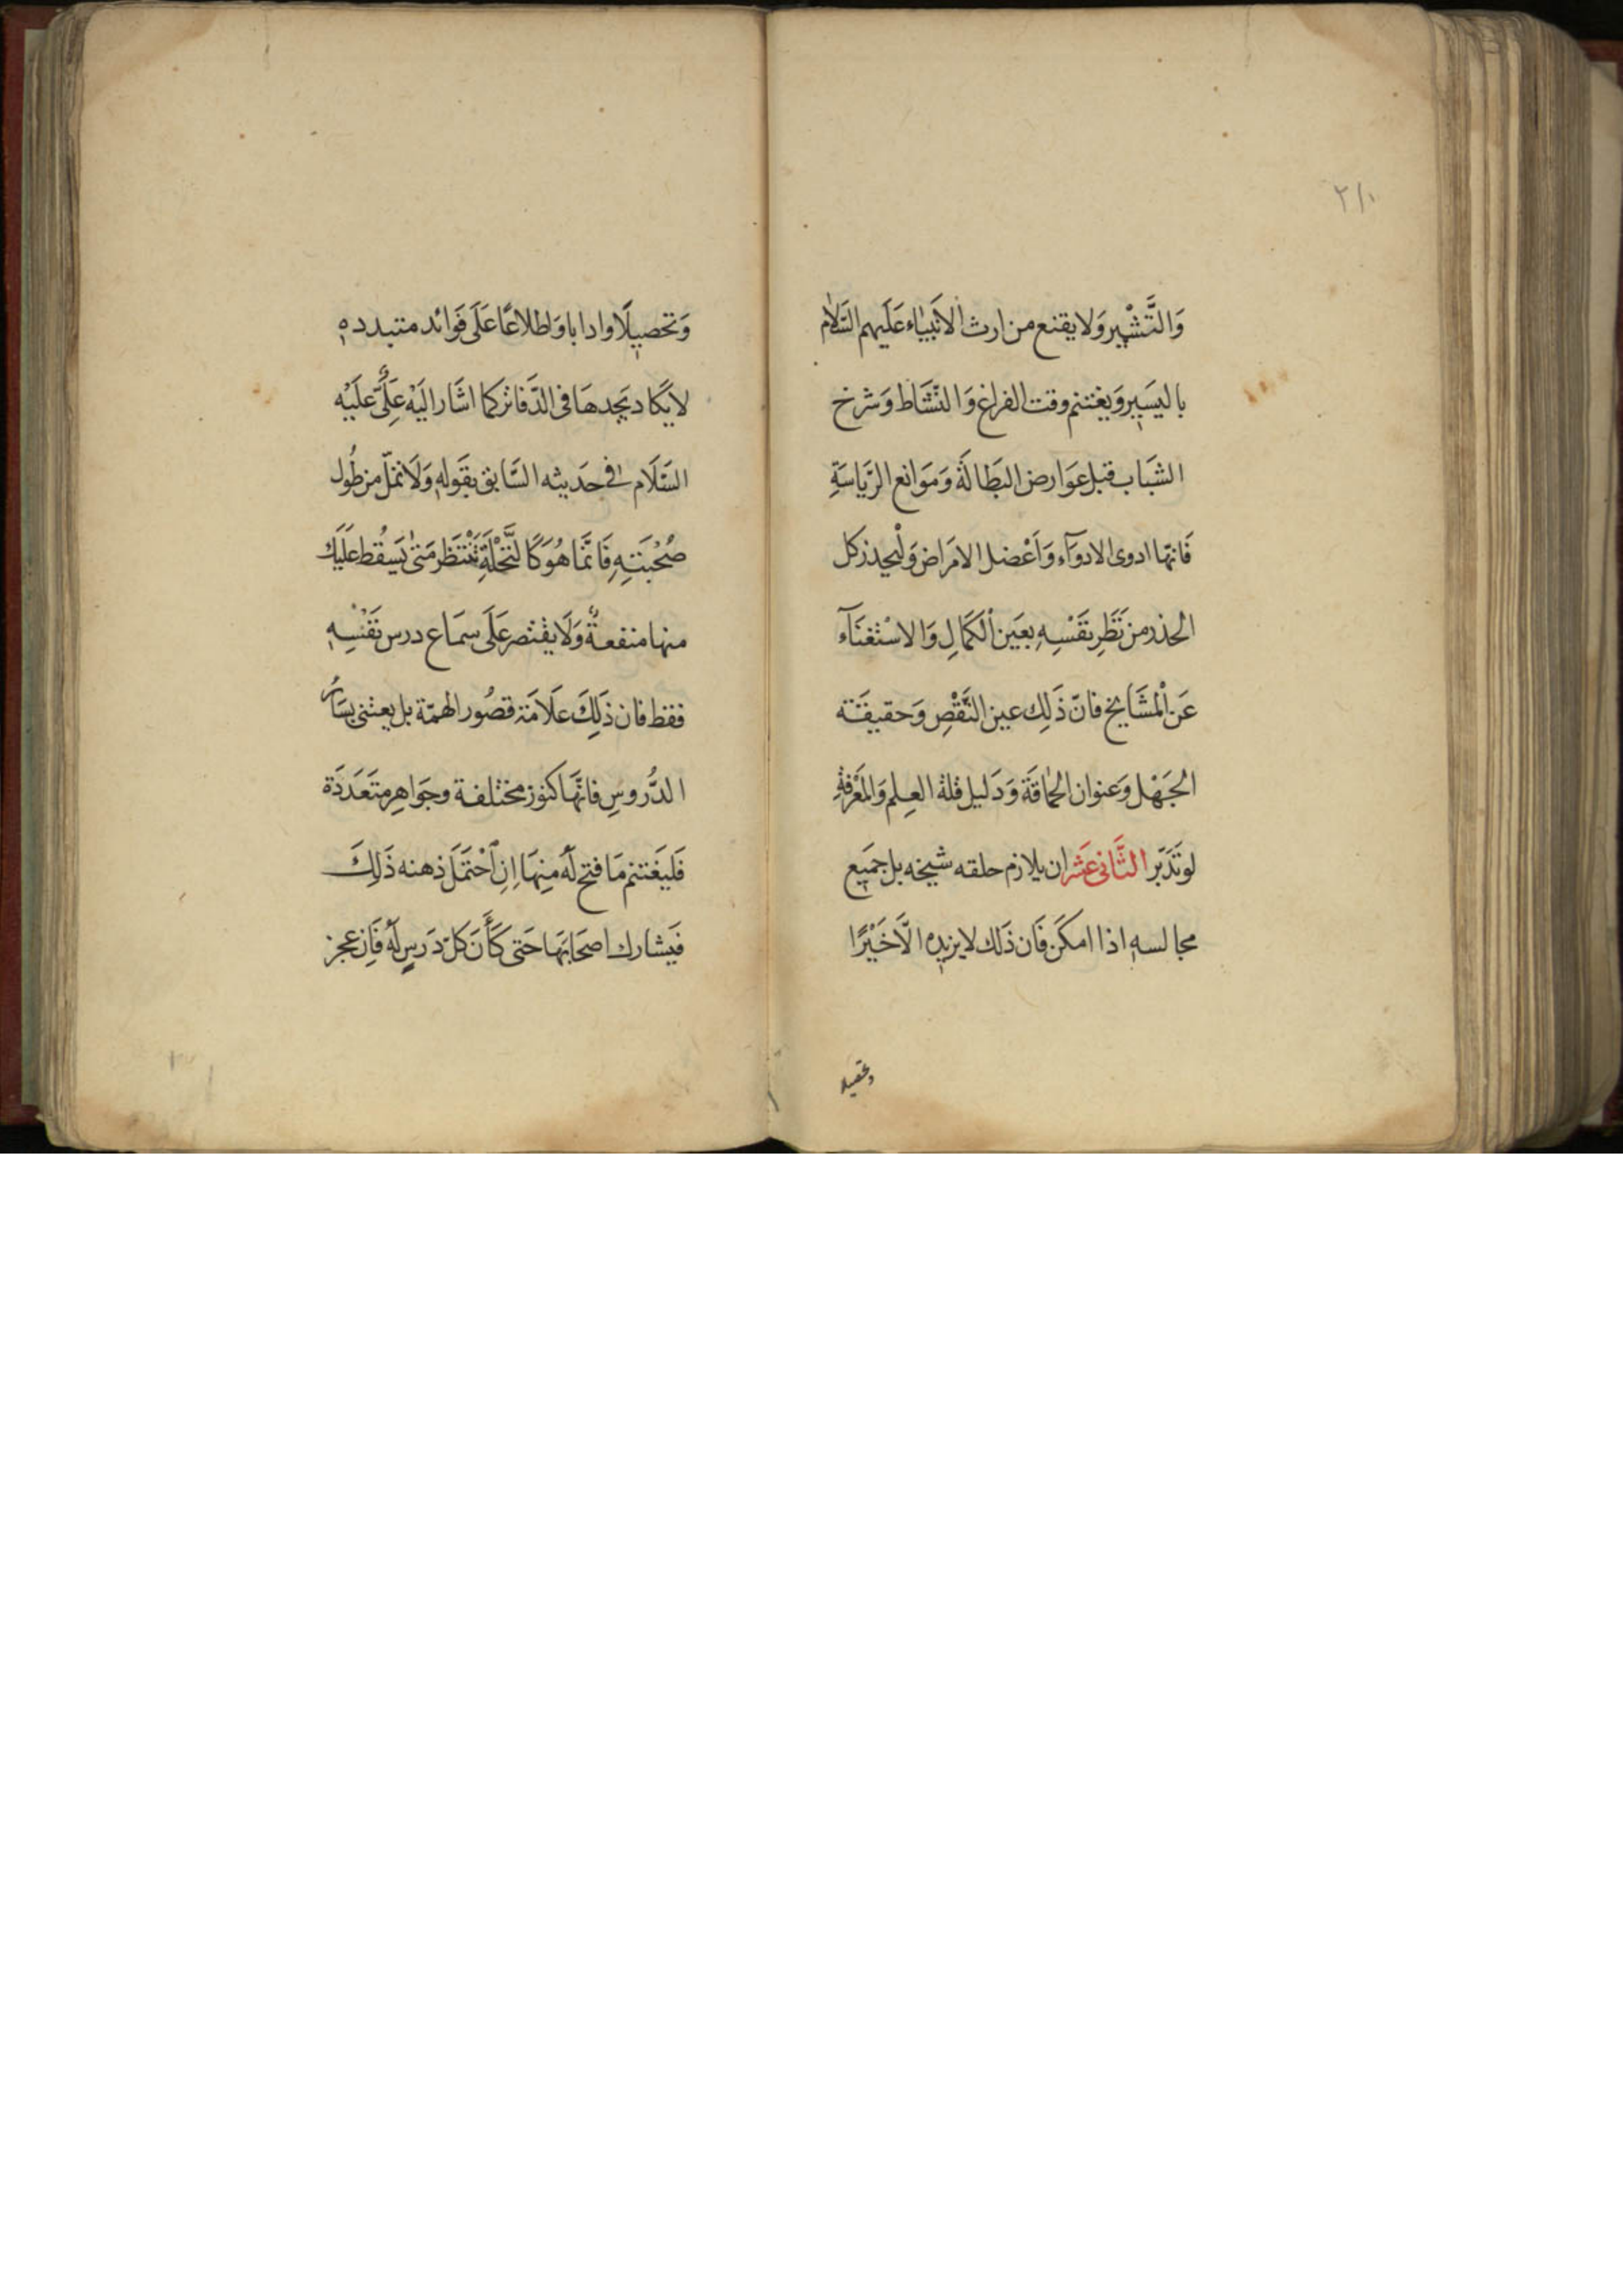 ٢١٠
وَالتَّشْمِير وَلا يقنع من ارث الاَنبيَاء عَلَيهم السَّلام
باليَسِير وَيغتنم وقت الفراغ وَالنَّشَاط وَشرخ
الشبَاب قبل عوَارض البَطَالَة وَمَوَانع الرِّيَاسَةِ
فَانّها ادوى الادوَآء وَاَعْضل الامرَاض وَلْيحذر كل
الحذر من نَظَرِ نَفْسِهِ بعَين اْلكَمَالِ وَالاسْتغنَآء
عَن اْلمشَايخ فانّ ذَلِك عين النَّقْصِ وَحقيقَته
الجَهْل وَعنوان الحمَاقَة وَدَليل قلة العِلم وَالمَعْرفةِ
لو تَدَبّر الثَّانى عَشَر ان يلازم حلقه شيخه بل جمَيع
مجالسه اذا امكَن فَان ذَلك لا يزيده الَّا خَيْرًا
وتحصيلا
وَتحصيلًا وادابا وَاطلاعًا عَلَى فَوائد متبدده
لا يَكاد يَجدهَا فى الدَّفاتر كما اشَار اليَه عَلِىٌّ علَيْه
السَّلَام فى حَديثه السَّابق بقَوله وَلَا تملّ من طُول
صُحْبَتهِ فَانّما هُوَ كَالنَّخْلَةِ تَنْتَظر مَتىٰ يَسقُط عَلَيك
منها منفعةٌ وَلَا يقتصر عَلَى سمَاع درس نَفْسِهِ
فقط فان ذَلِكَ علَامَة قصُور الهمّة بل يعتنى بسَائر
الدُّروسِ فانَّها كنوز مختلفة وجوَاهر متَعَددَة
فَليَغتنم مَا فتح لَهُ مِنهَا اِنِ احْتمَلَ ذهنه ذَلِكَ
فَيشارك اصحَابهَا حَتى كَأَنَ كلّ دَرسٍ لَهُ فَاِن عجز